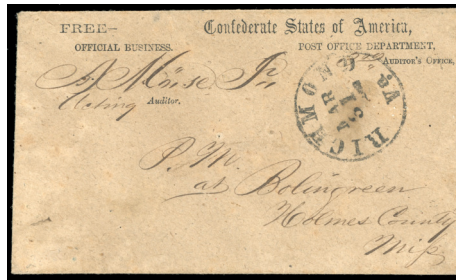 FREE—
OFFICIAL BUSINESS.
Confederate States of America,
POST OFFICE DEPARTMENT,
AUDITOR'S OFFICE,
Moïse Jr.
Acting Auditor.
RICHMOND Va.
MAR
31
P. M.
at Bolingreen
Holmes County
Miss